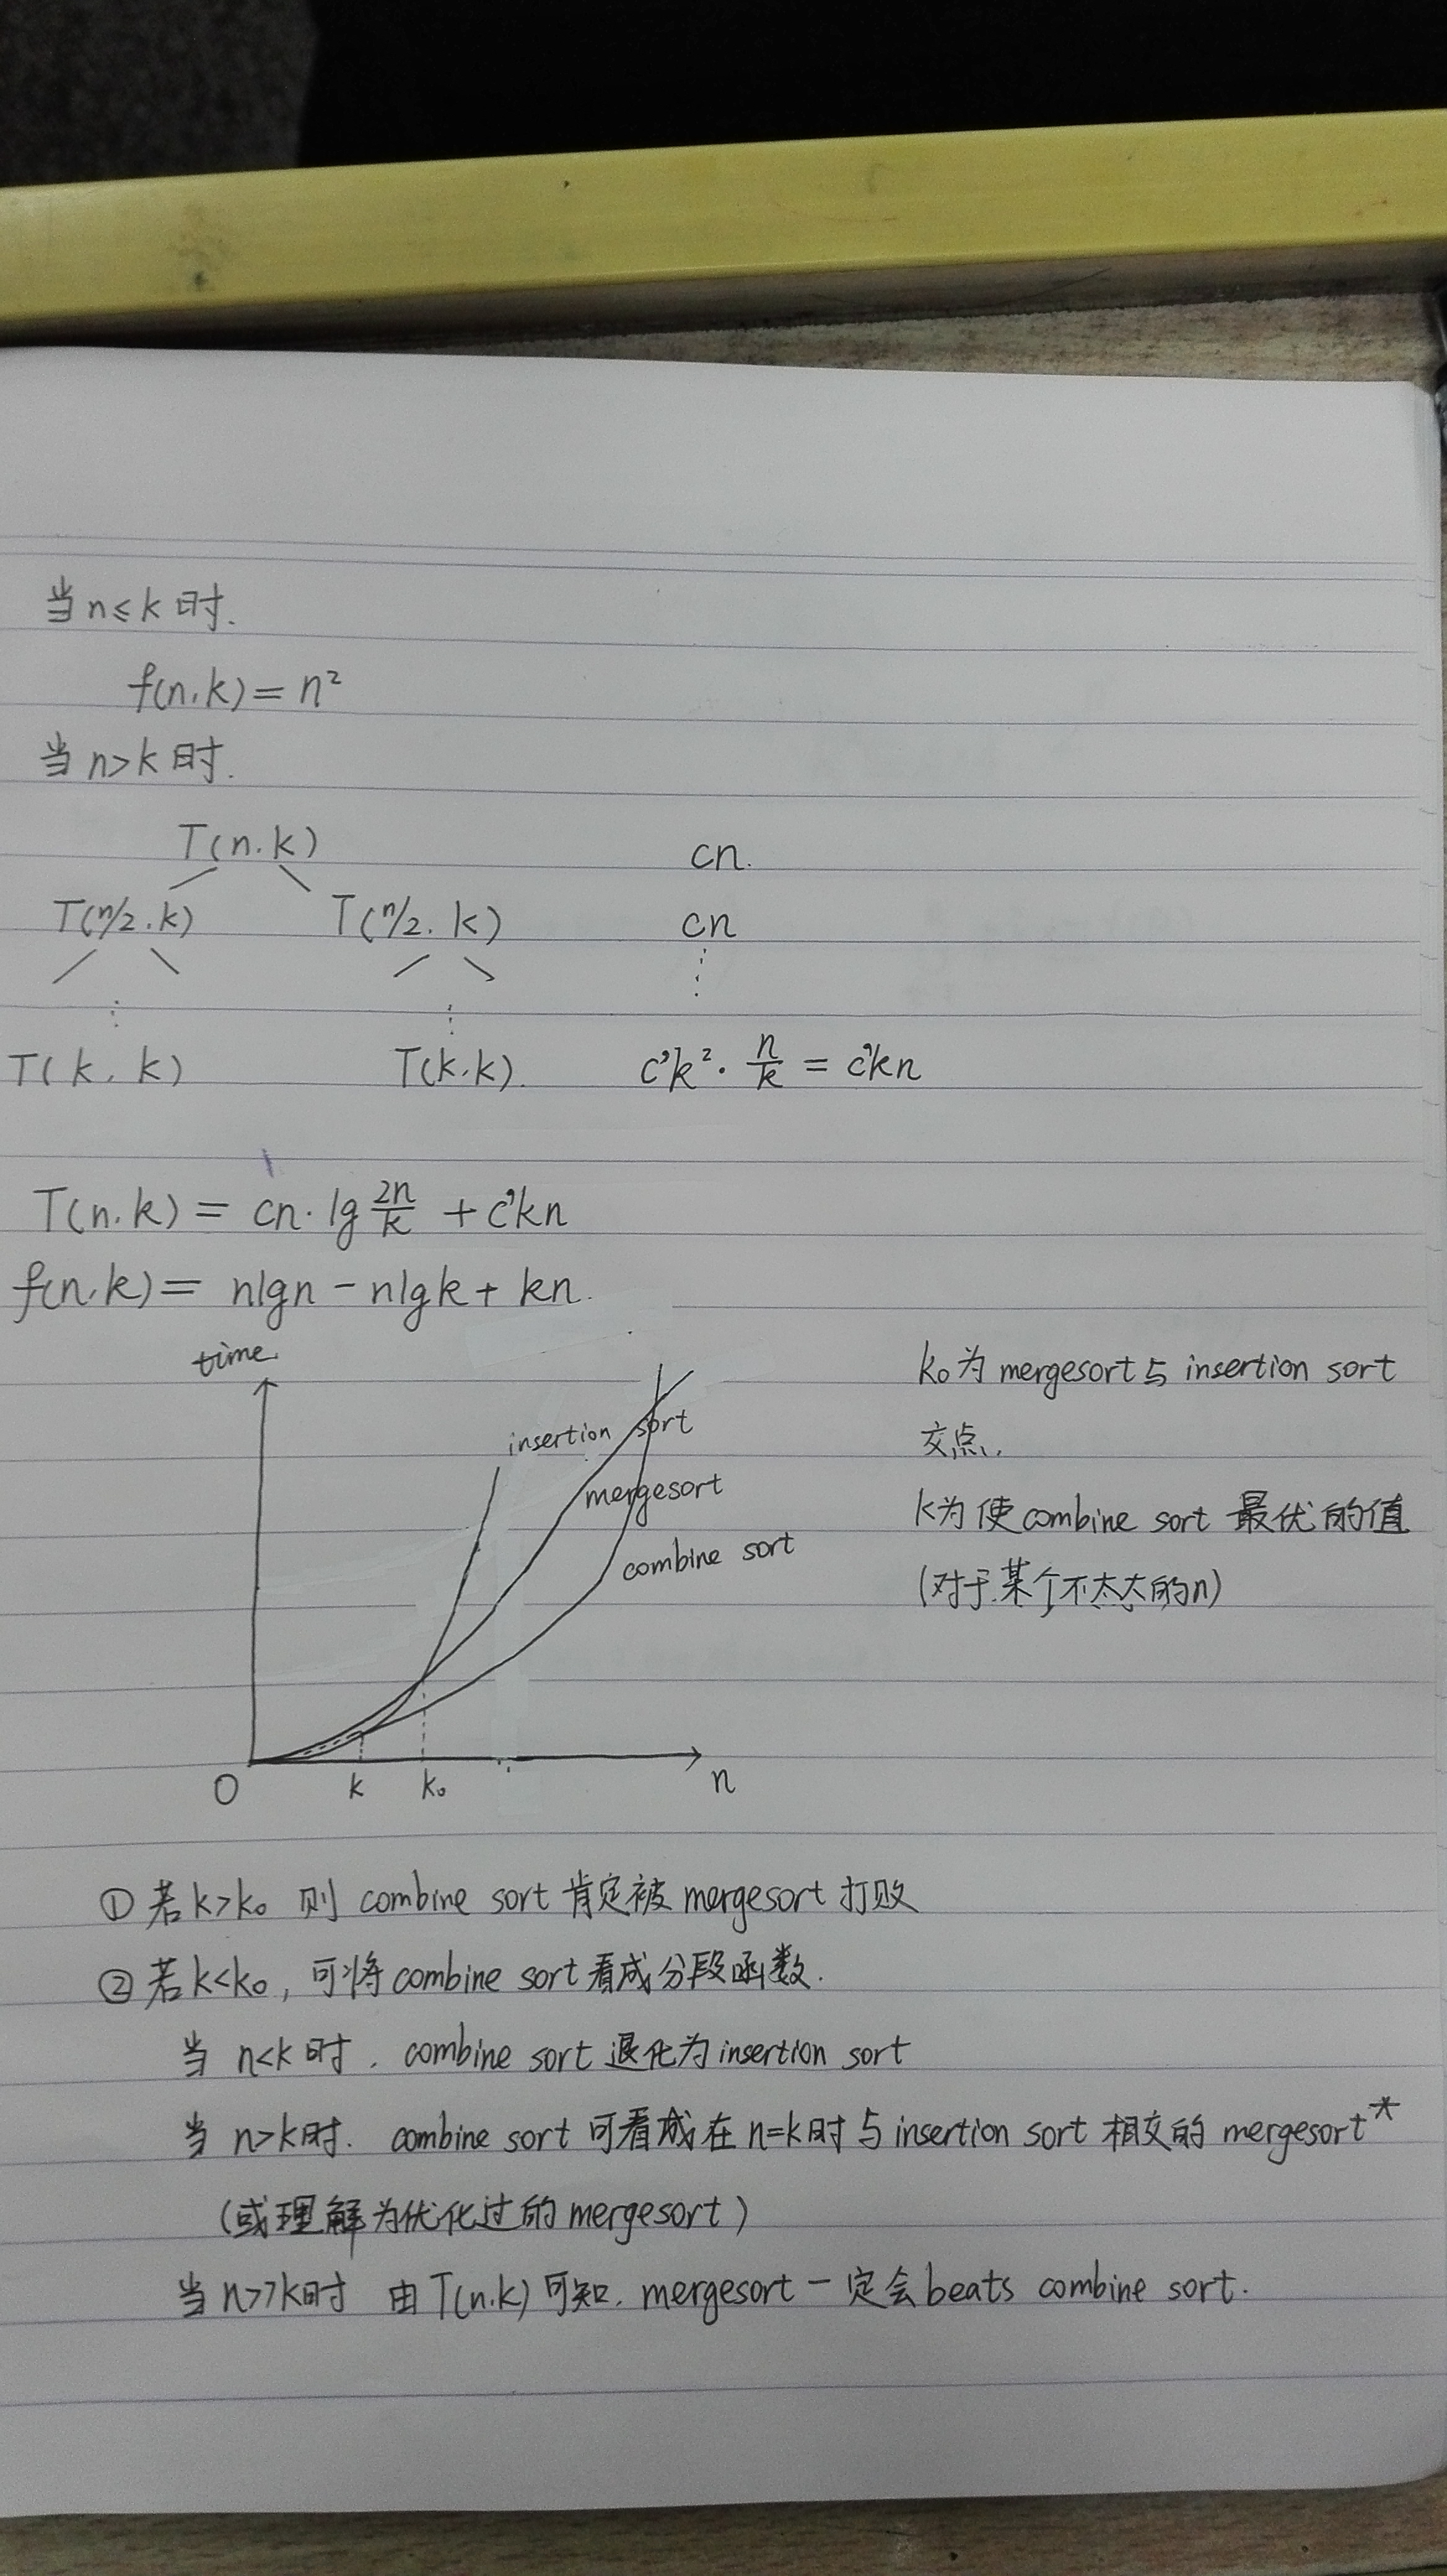 当 n≤k 时.
f(n,k) = n²
当 n>k 时.
T(n.k) cn.
T(n/2.k) T(n/2.k) cn
⋮ ⋮ ⋮
T(k.k) T(k.k). c'k²·n/k = c'kn
T(n.k) = cn·lg 2n/k + c'kn
f(n,k) = nlgn - nlgk + kn.
time
insertion sort
mergesort
combine sort
O k k₀ n
k₀为 mergesort与 insertion sort
交点.
k为使combine sort 最优的值
(对于某个不太大的n)
① 若 k>k₀ 则 combine sort 肯定被 mergesort 打败
② 若 k<k₀, 可将 combine sort 看成分段函数.
当 n<k 时. combine sort 退化为 insertion sort
当 n>k时. combine sort 可看成在 n=k时与 insertion sort 相交的 mergesort*
(或理解为优化过的 mergesort)
当 n>>k时 由 T(n.k) 可知. mergesort 一定会 beats combine sort.